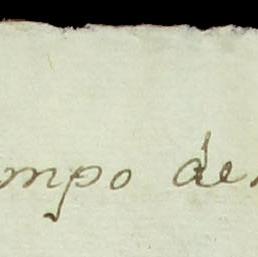 mpo de